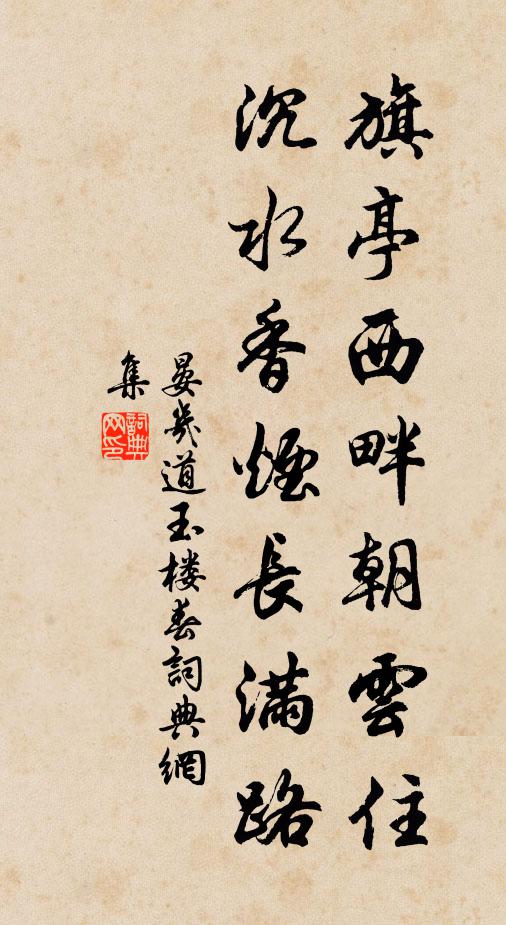 旗亭西畔朝雲住
沉水香煙長滿路
晏幾道玉楼春詞典網
集
詞典网印